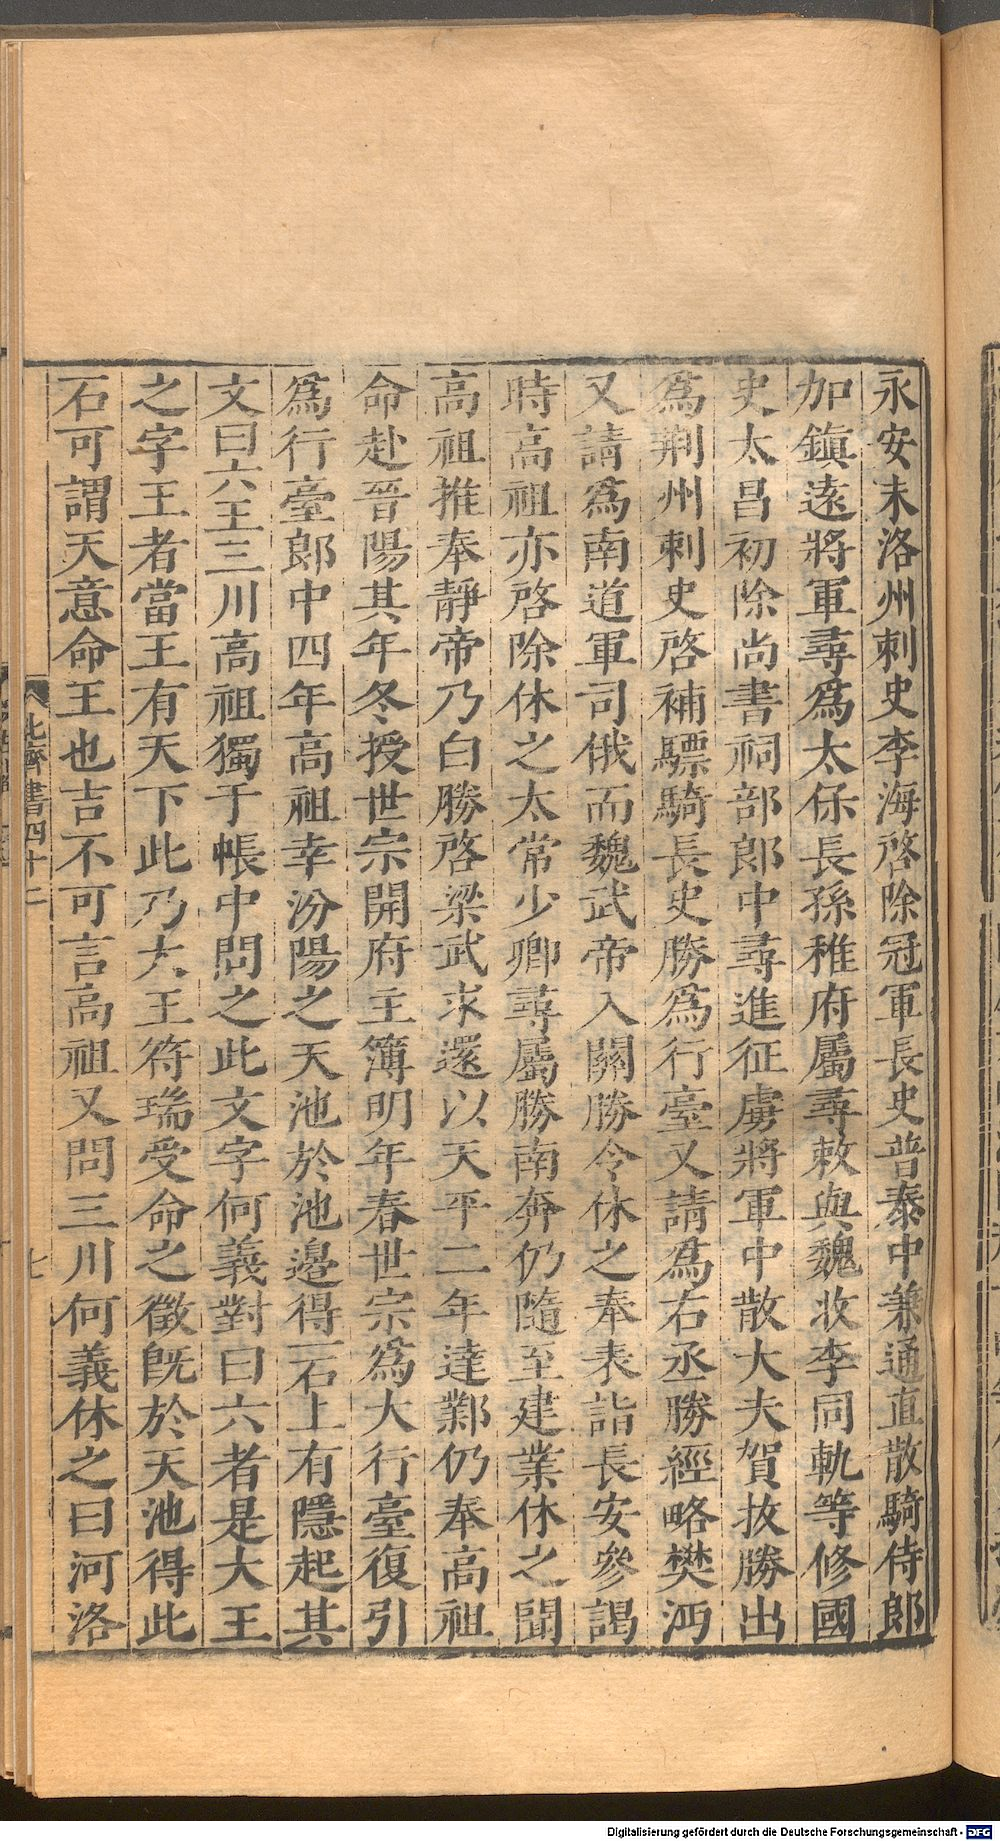 永安末洛州刺史李海啓除冠軍長史普泰中兼通直散騎侍郎
加鎮遠將軍尋爲太保長孫稚府屬尋敕與魏收李同軌等修國
史太昌初除尚書祠部郎中尋進征虜將軍中散大夫賀拔勝出
爲荆州刺史啓補驃騎長史勝爲行臺又請爲右丞勝經略樊沔
又請爲南道軍司俄而魏武帝入關勝令休之奉表詣長安參謁
時高祖亦啓除休之太常少卿尋屬勝南奔仍隨至建業休之聞
高祖推奉靜帝乃白勝啓梁武求還以天平二年達鄴仍奉高祖
命赴晉陽其年冬授世宗開府主簿明年春世宗爲大行臺復引
爲行臺郎中四年高祖幸汾陽之天池於池邊得一石上有隱起其
文曰六王三川高祖獨于帳中問之此文字何義對曰六者是大王
之字王者當王有天下此乃大王符瑞受命之徵旣於天池得此
石可謂天意命王也吉不可言高祖又問三川何義休之曰河洛
北齊書四十二
七
Digitalisierung gefördert durch die Deutsche Forschungsgemeinschaft - DFG